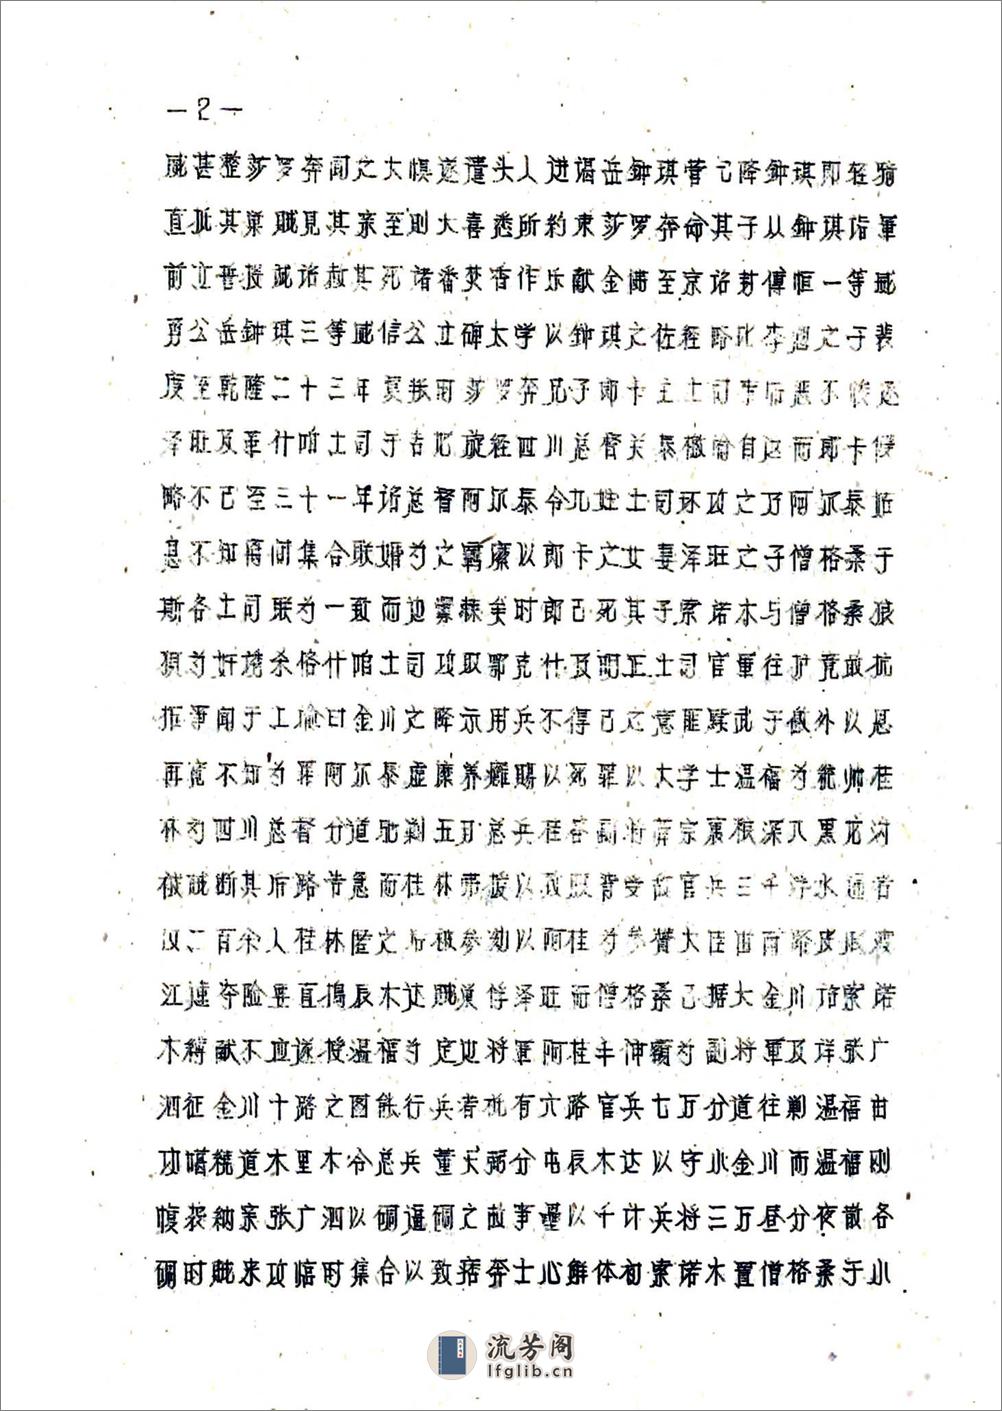 —2—
威甚整莎罗奔闻之大惧遂遣头人进谒岳钟琪营乞降钟琪即轻骑
直抵其巢贼见其亲至则大喜悉所约束莎罗奔命其子从钟琪诣军
前立誓授诚诏赦其死诸番焚香作乐献金佛至京诏封傅恒一等威
勇公岳钟琪三等威信公立碑太学以钟琪之佐经略比李愬之于裴
度至乾隆二十三年夏秋时莎罗奔兄子郎卡主土司事后恶不悛逐
泽旺及革什咱土司于吉地旋经四川总督开泰檄谕自达而郎卡侵
略不已至三十一年诏总督阿尔泰令九姓土司环攻之乃阿尔泰姑
息不知离间集合联婚为之羁縻以郎卡之女妻泽旺之子僧格桑于
斯各土司联为一致而边衅棘矣时郎已死其子索诺木与僧格桑狼
狈为奸诱杀格什咱土司攻取鄂克什及明正土司官军往护竟敢抗
拒事闻于上谕曰金川之降示用兵不得已之意匪黩武于徼外以恳
再宽不知为罪阿尔泰虚糜养痈赐以死罪以大学士温福为统帅桂
林为四川总督分道驰剿五圹总兵桂林副将薛宗袭狼深入黑龙沟
被贼断其后路告急而桂林弗援以致腹背受敌官兵三千泅水通者
仅二百余人桂林匿之后被参劾以阿桂为参赞大臣由南路皮船渡
江速夺险要直捣辰木达贼巢俘泽旺而僧格桑已据大金川诣索诺
木缚献不应遂授温福为定边将军阿桂丰伸额为副将军及详张广
泗征金川十路之图能行兵者祗有六路官兵七万分道往剿温福由
功噶梳道木里木令总兵董天弼分屯辰木达以守小金川而温福刚
愎袭纳亲张广泗以碉逼碉之故事垒以千计兵将三万昼分夜散各
碉时贼来攻临时集合以致掊奔士心解体初索诺木置僧格桑于小
流芳阁
lfglib.cn